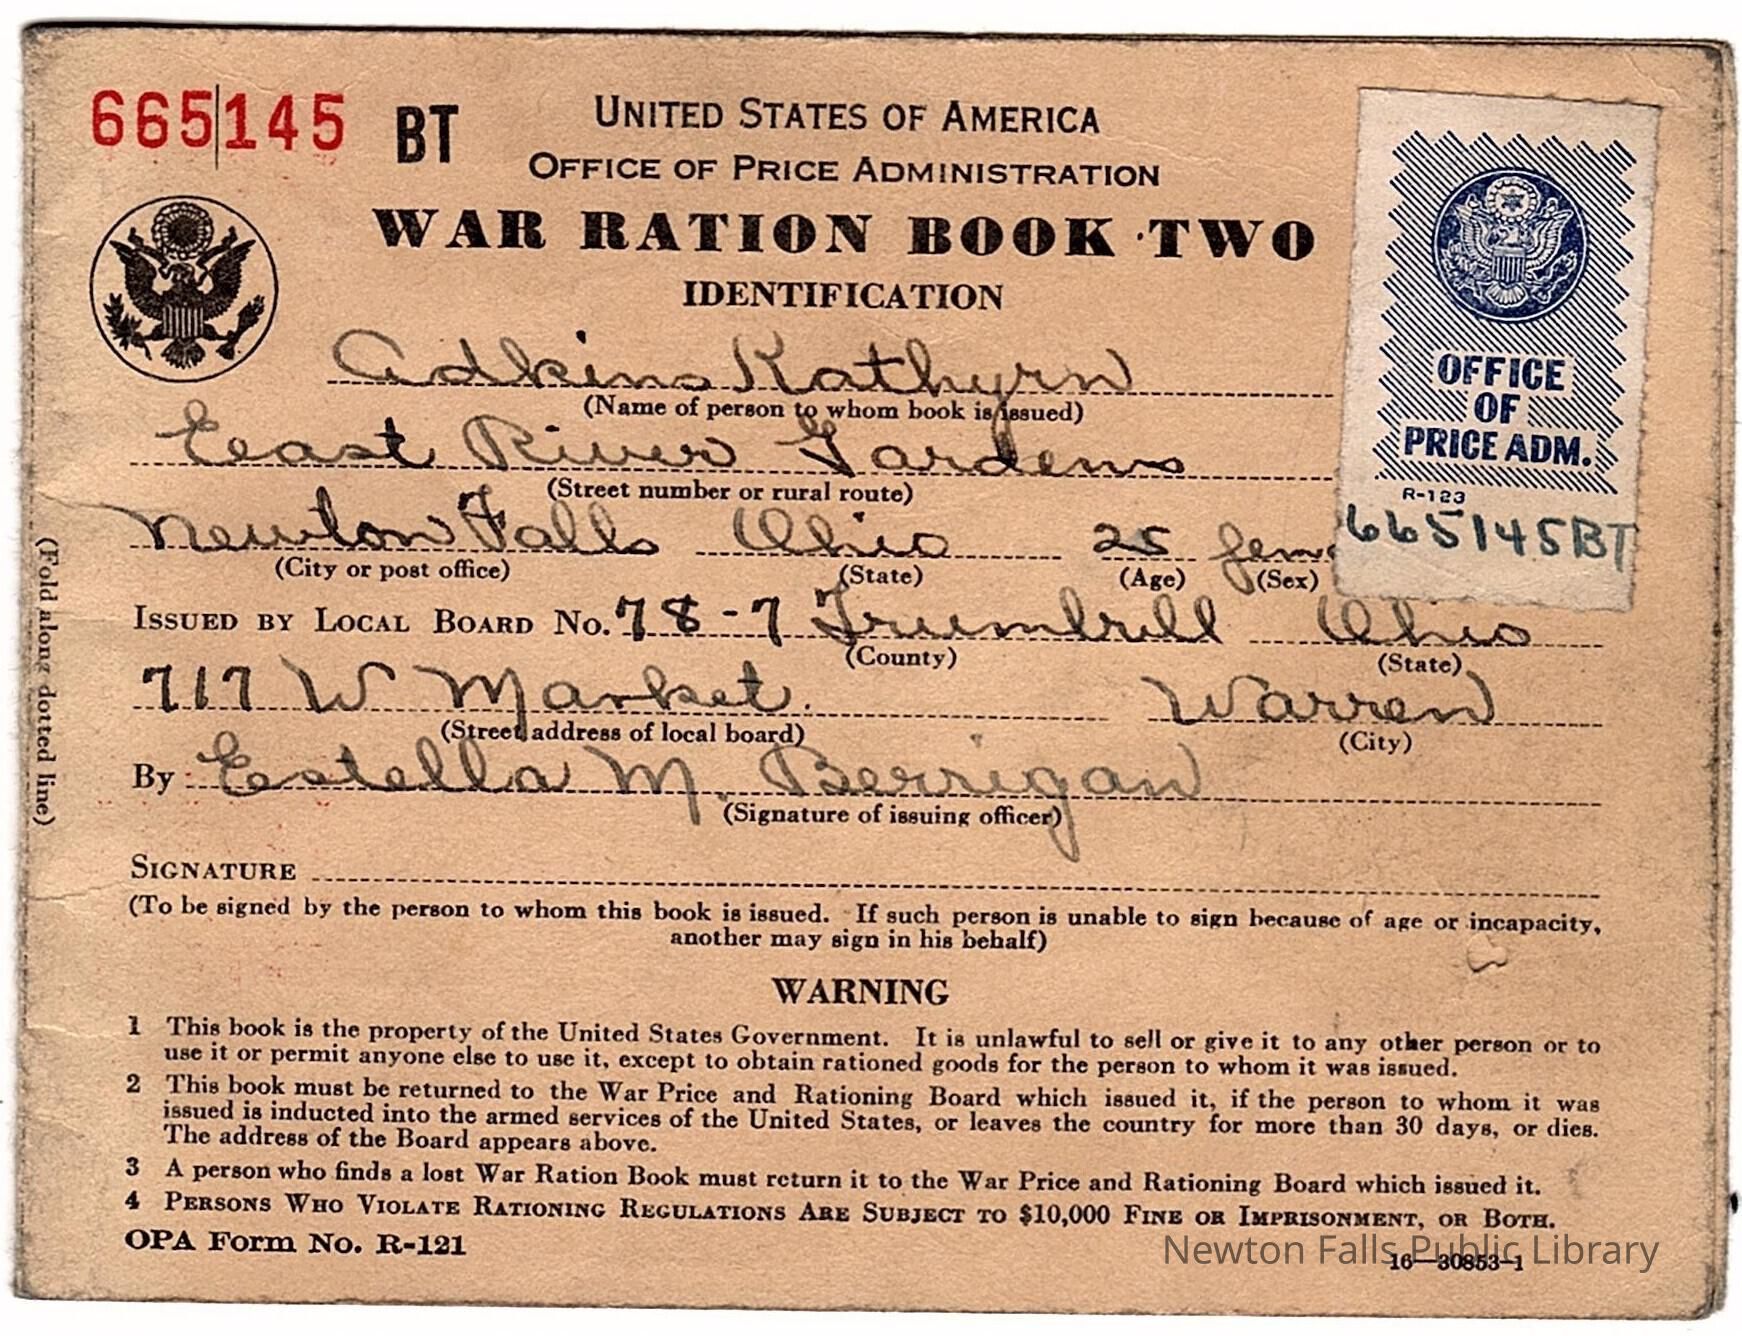 665145 BT
UNITED STATES OF AMERICA
OFFICE OF PRICE ADMINISTRATION
WAR RATION BOOK TWO
IDENTIFICATION
Adkins Kathyrn
(Name of person to whom book is issued)
East River Gardens
(Street number or rural route)
Newton Falls Ohio 25 fem
(City or post office) (State) (Age) (Sex)
OFFICE
OF
PRICE ADM.
R-123
665145BT
ISSUED BY LOCAL BOARD No. 78-7 Trumbull Ohio
(County) (State)
717 W Market. Warren
(Street address of local board) (City)
By Estella M. Berrigan
(Signature of issuing officer)
SIGNATURE
(To be signed by the person to whom this book is issued. If such person is unable to sign because of age or incapacity,
another may sign in his behalf)
WARNING
1 This book is the property of the United States Government. It is unlawful to sell or give it to any other person or to
use it or permit anyone else to use it, except to obtain rationed goods for the person to whom it was issued.
2 This book must be returned to the War Price and Rationing Board which issued it, if the person to whom it was
issued is inducted into the armed services of the United States, or leaves the country for more than 30 days, or dies.
The address of the Board appears above.
3 A person who finds a lost War Ration Book must return it to the War Price and Rationing Board which issued it.
4 PERSONS WHO VIOLATE RATIONING REGULATIONS ARE SUBJECT TO $10,000 FINE OR IMPRISONMENT, OR BOTH.
OPA Form No. R-121
16—30853-1
Newton Falls Public Library
(Fold along dotted line)